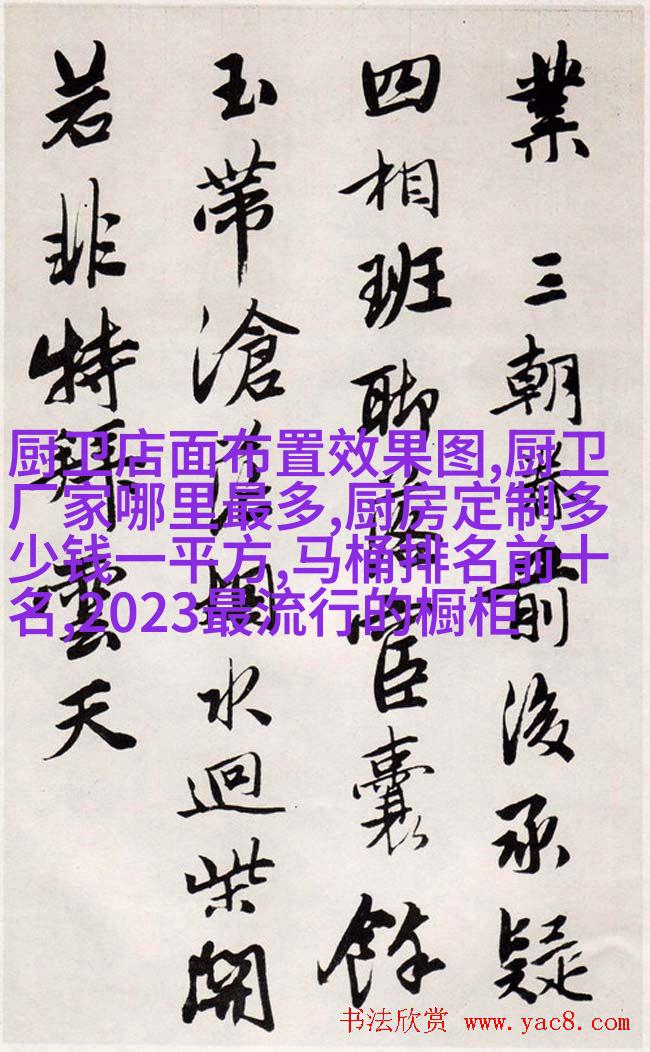 業 三朝前後承疑
四相班聊臣囊餘
玉帶滄水迴柴開
若非特雲天
厨卫店面布置效果图,厨卫
厂家哪里最多,厨房定制多
少钱一平方,马桶排名前十
名,2023最流行的橱柜
书法欣赏 www.yac8.com